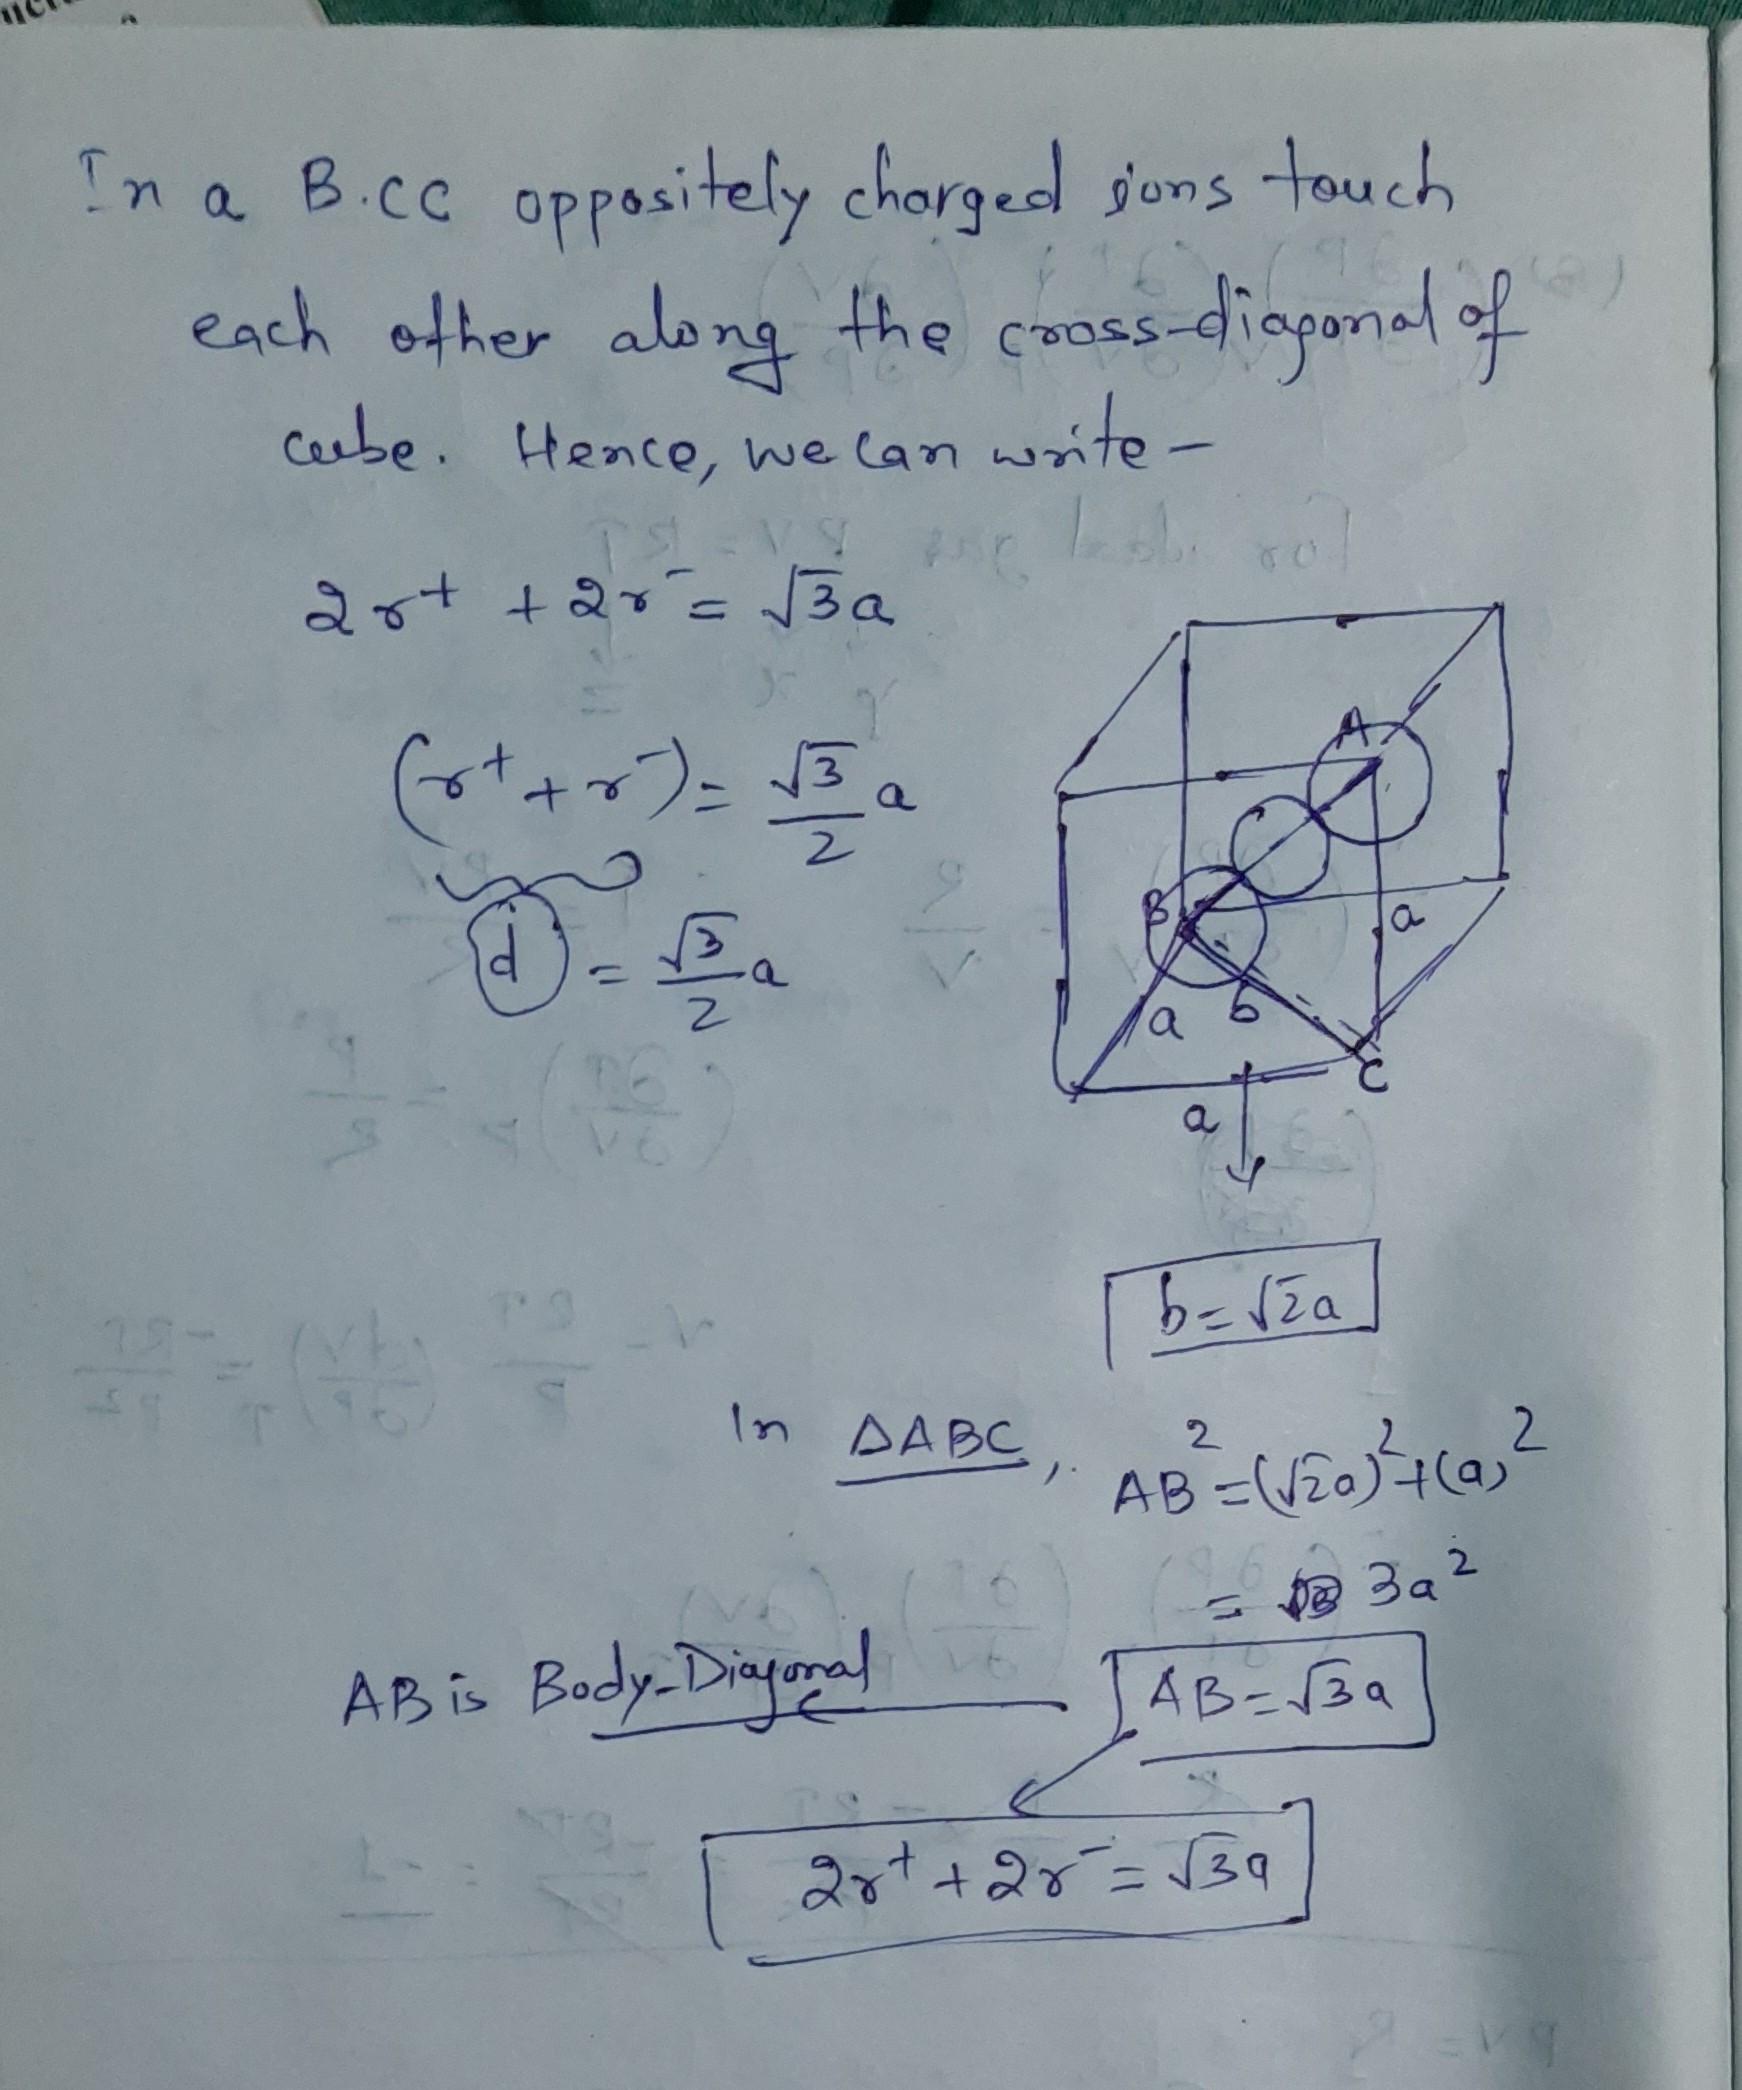 In a B.cc oppositely charged ions touch
each other along the cross-diagonal of
cube. Hence, we can write -
2r⁺ + 2r⁻ = √3a
(r⁺ + r⁻) = √3/2 a
d = √3/2 a
A
B
a
a
b
C
a
b = √2a
In ΔABC, AB² = (√2a)² + (a)²
= 3a²
AB is Body-Diagonal
AB = √3a
2r⁺ + 2r⁻ = √3a